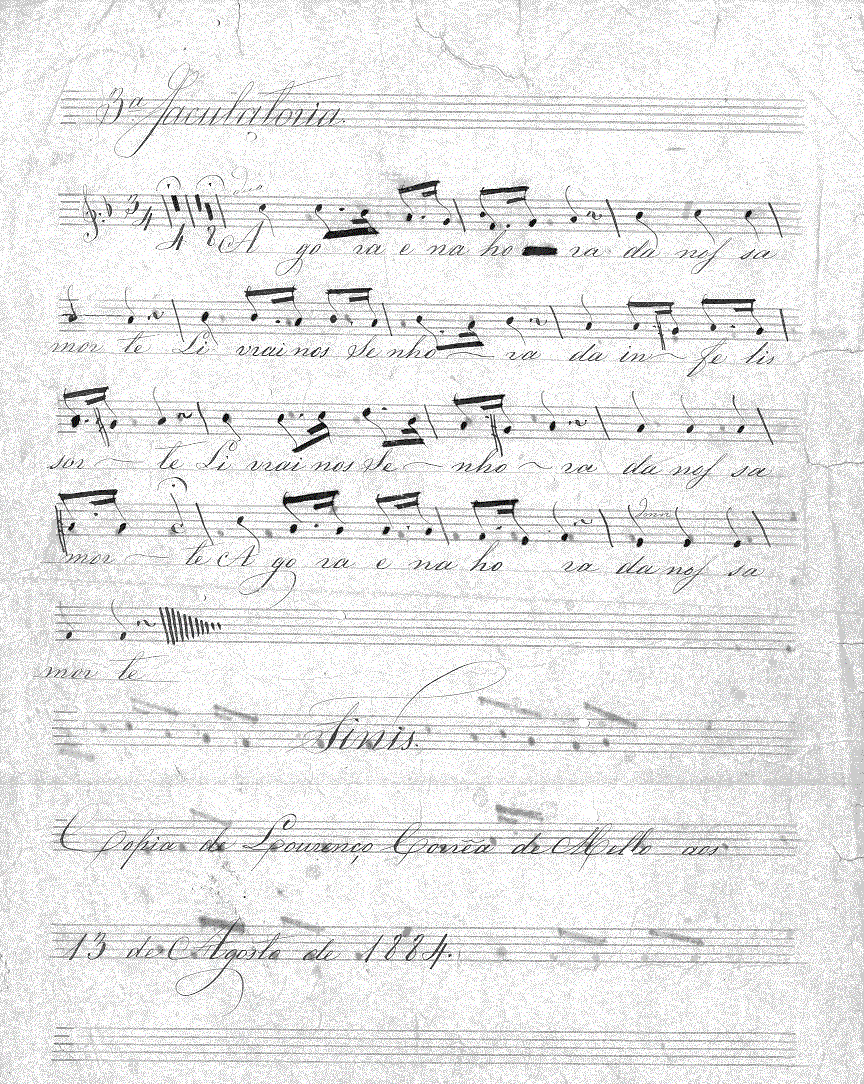 3ª Jaculatoria.
3 4 4 8 Duo
A go ra e na ho ra da nos sa
mor te Li vrai nos Se nho ra da in fe lis
sor te Li vrai nos Se nho ra da nos sa
mor te A go ra e na ho ra da nos sa
mor te
Finis.
Copia de Lourenço Corrêa de Mello aos
13 de Agosto de 1884.